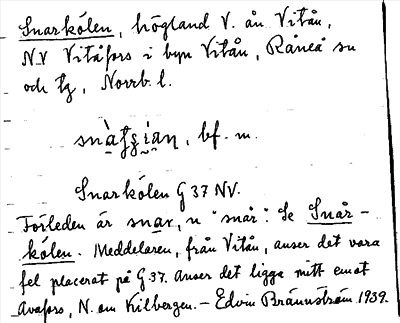 Snarkölen, högland V. ån Vitån,
NV Vitåfors i byn Vitån, Råneå sn
och tg, Norrb. l.
bf. m.
Snarkölen G 37 NV.
Förleden är snar, n "snår". Se Snår-
kölen. Meddelaren, från Vitån, anser det vara
fel placerat på G 37. Anser det ligga mitt emot
Avafors, N. om Kilbergen. – Edvin Brännström 1939.